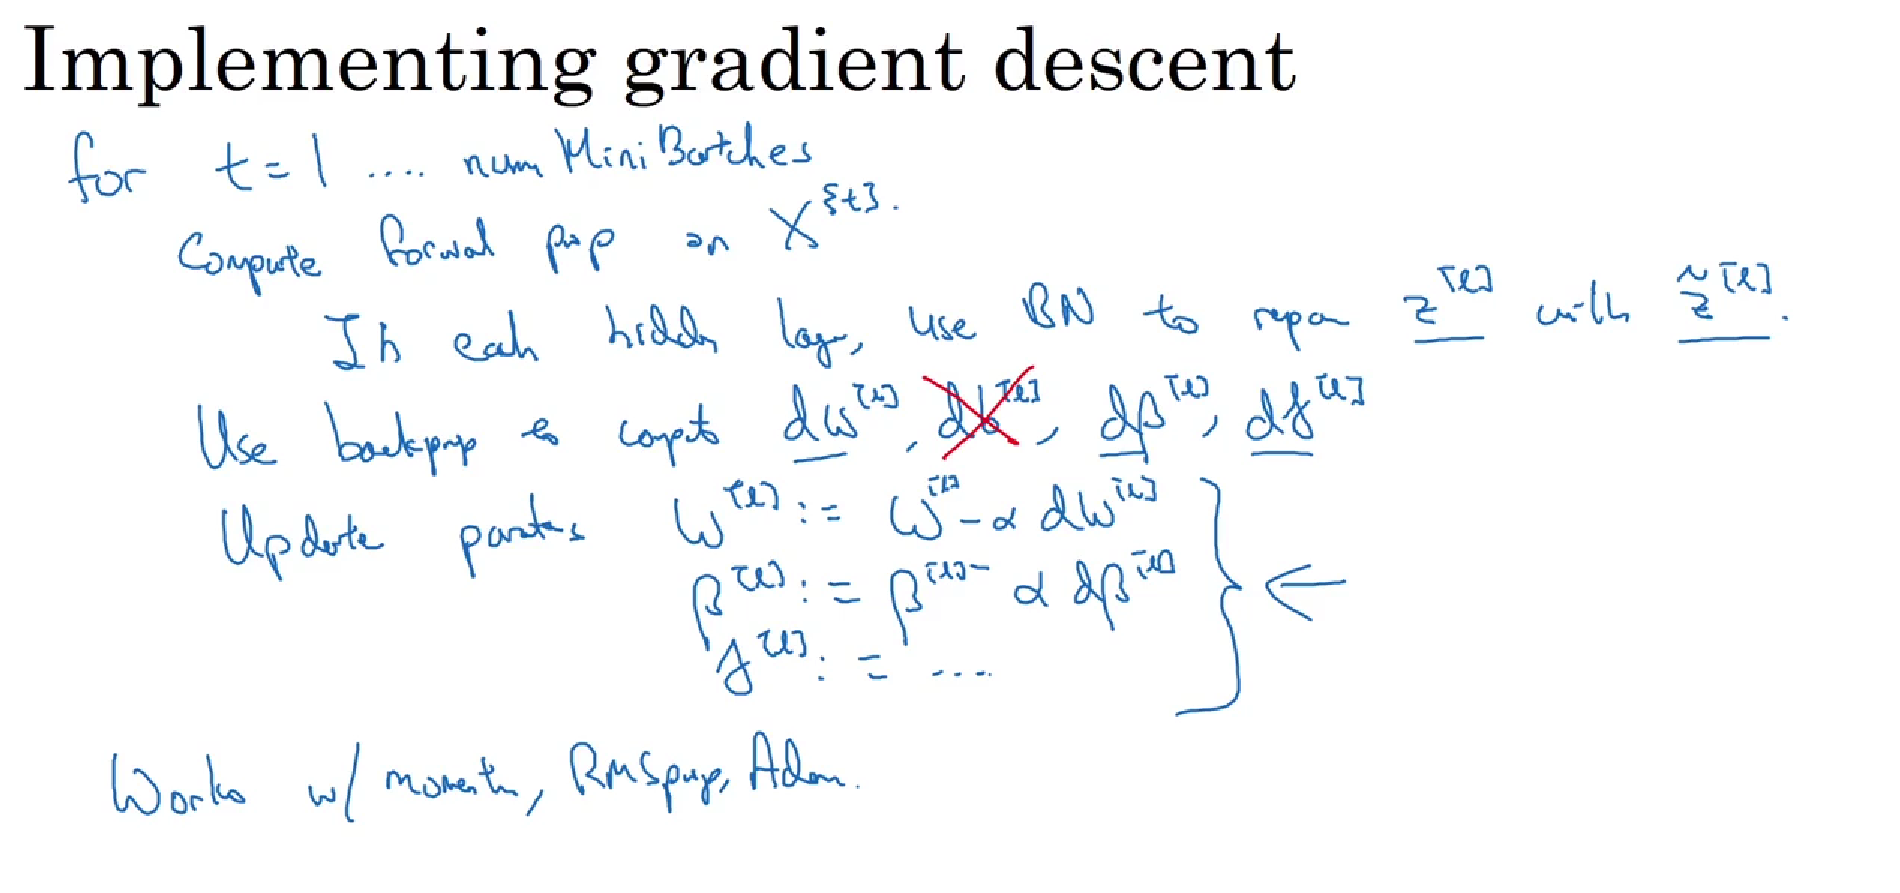 Implementing gradient descent
for t = 1 .... num Mini Batches
Compute forwal prop on X^{t}.
In each hidden layer, use BN to repace z^[l] with z̃^[l].
Use backprop to compute dw^[l], db^[l], dβ^[l], dγ^[l]
Update parates W^[l] := W^[l] - α dw^[l]
β^[l] := β^[l] - α dβ^[l]
γ^[l] := ....
Works w/ momentum, RMSprop, Adam.